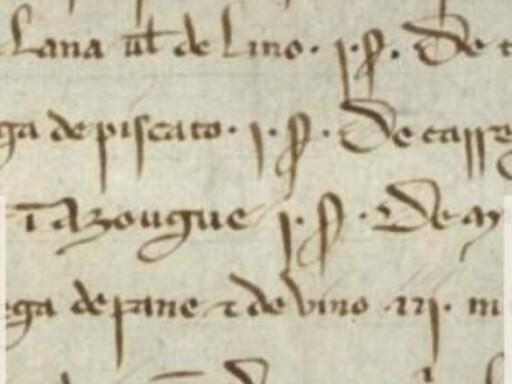 Lana ul̄ de lino. j. ſ. De
ga de piscato. j. ſ. De carre
azougue j. ſ. De
ega de pane ⁊ de vino .iij. m